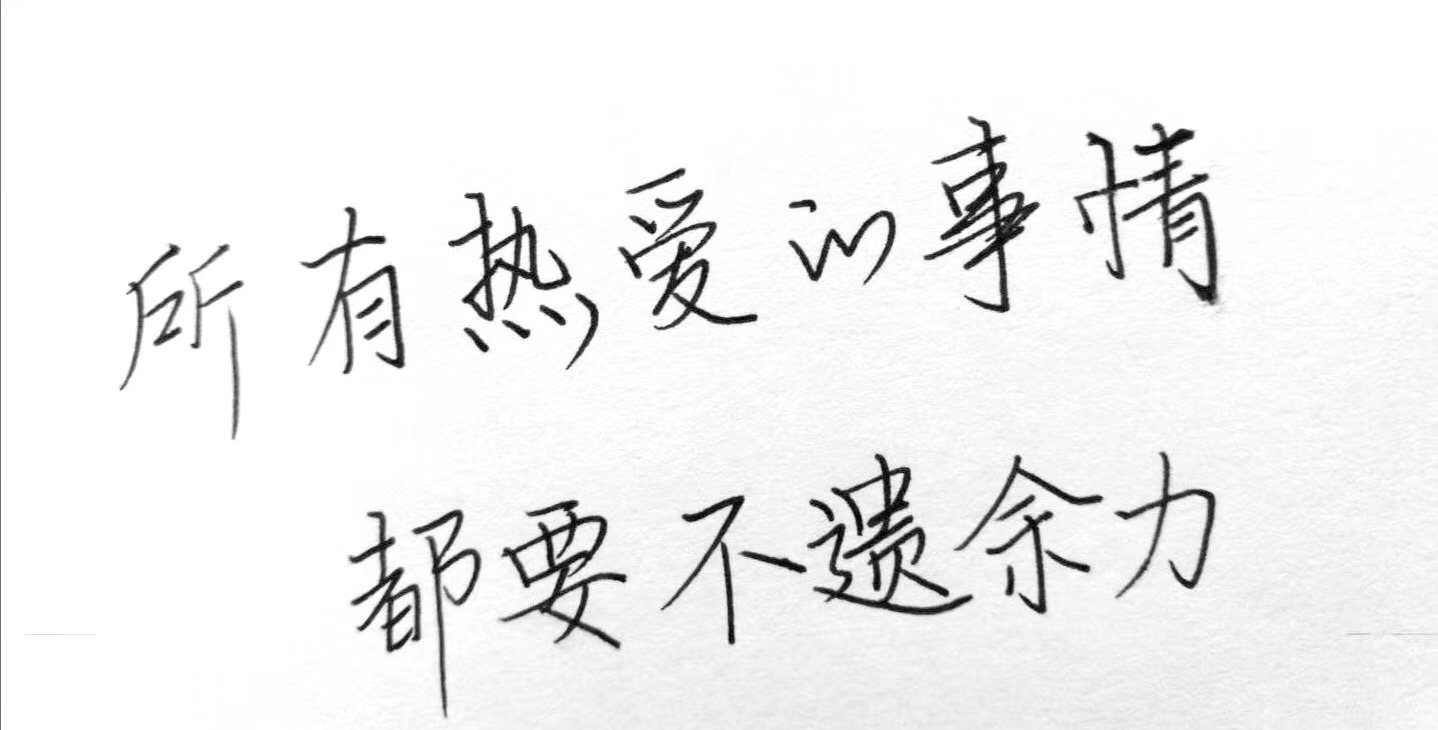 所有热爱的事情
都要不遗余力